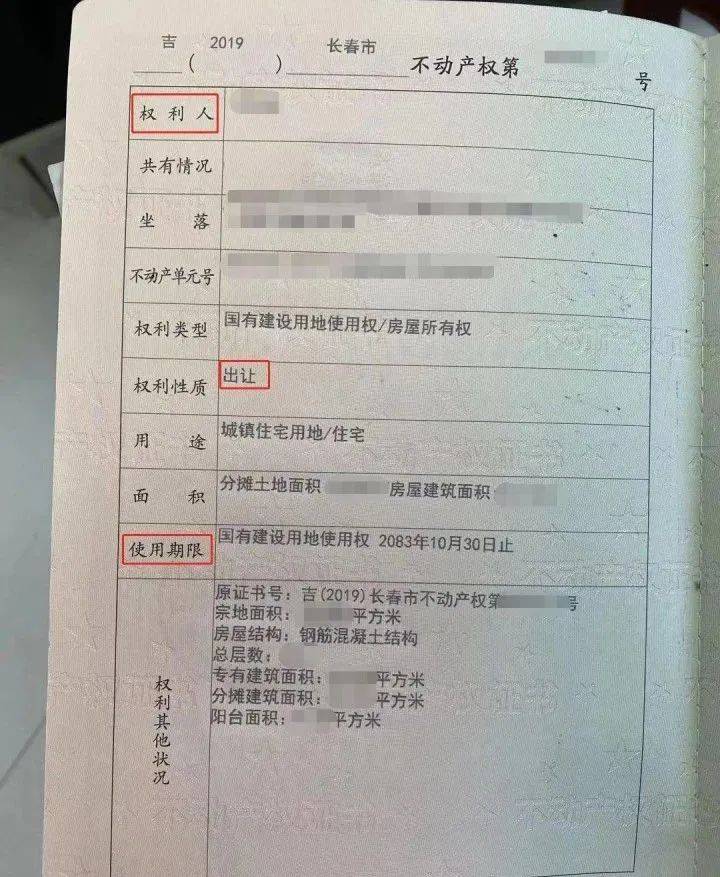 吉 ( 2019 ) 长春市 不动产权第 号
权利人
共有情况
坐 落
不动产单元号
权利类型 国有建设用地使用权/房屋所有权
权利性质 出让
用 途 城镇住宅用地/住宅
面 积 分摊土地面积 房屋建筑面积
使用期限 国有建设用地使用权 2083年10月30日止
权利其他状况
原证书号：吉(2019)长春市不动产权第 号
宗地面积： 平方米
房屋结构：钢筋混凝土结构
总层数：
专有建筑面积： 平方米
分摊建筑面积： 平方米
阳台面积： 平方米